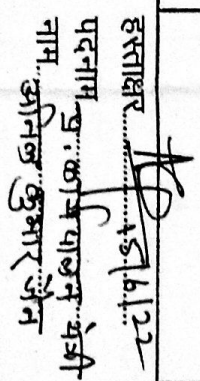 हस्ताक्षर.......... 15/6/22
पदनाम प्र. कार्यपालन यंत्री
नाम अनिल कुमार जैन